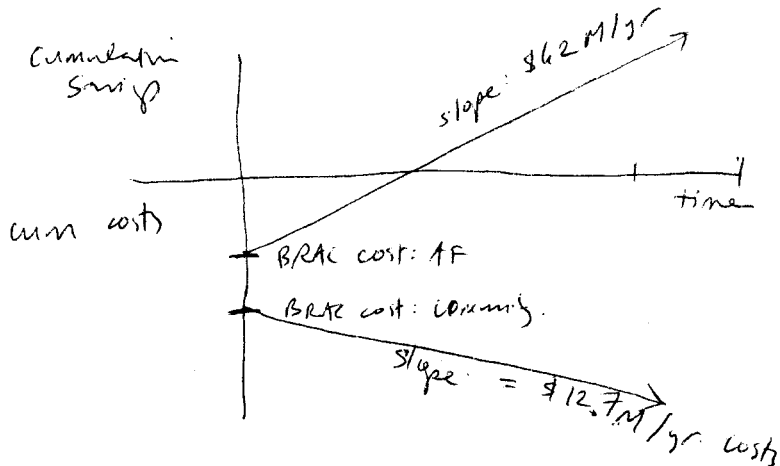 Cumulative
Savings
slope: $62 M/yr
time
cum costs
BRAC cost: AF
BRAC cost: community.
slope = $12.7M/yr costs